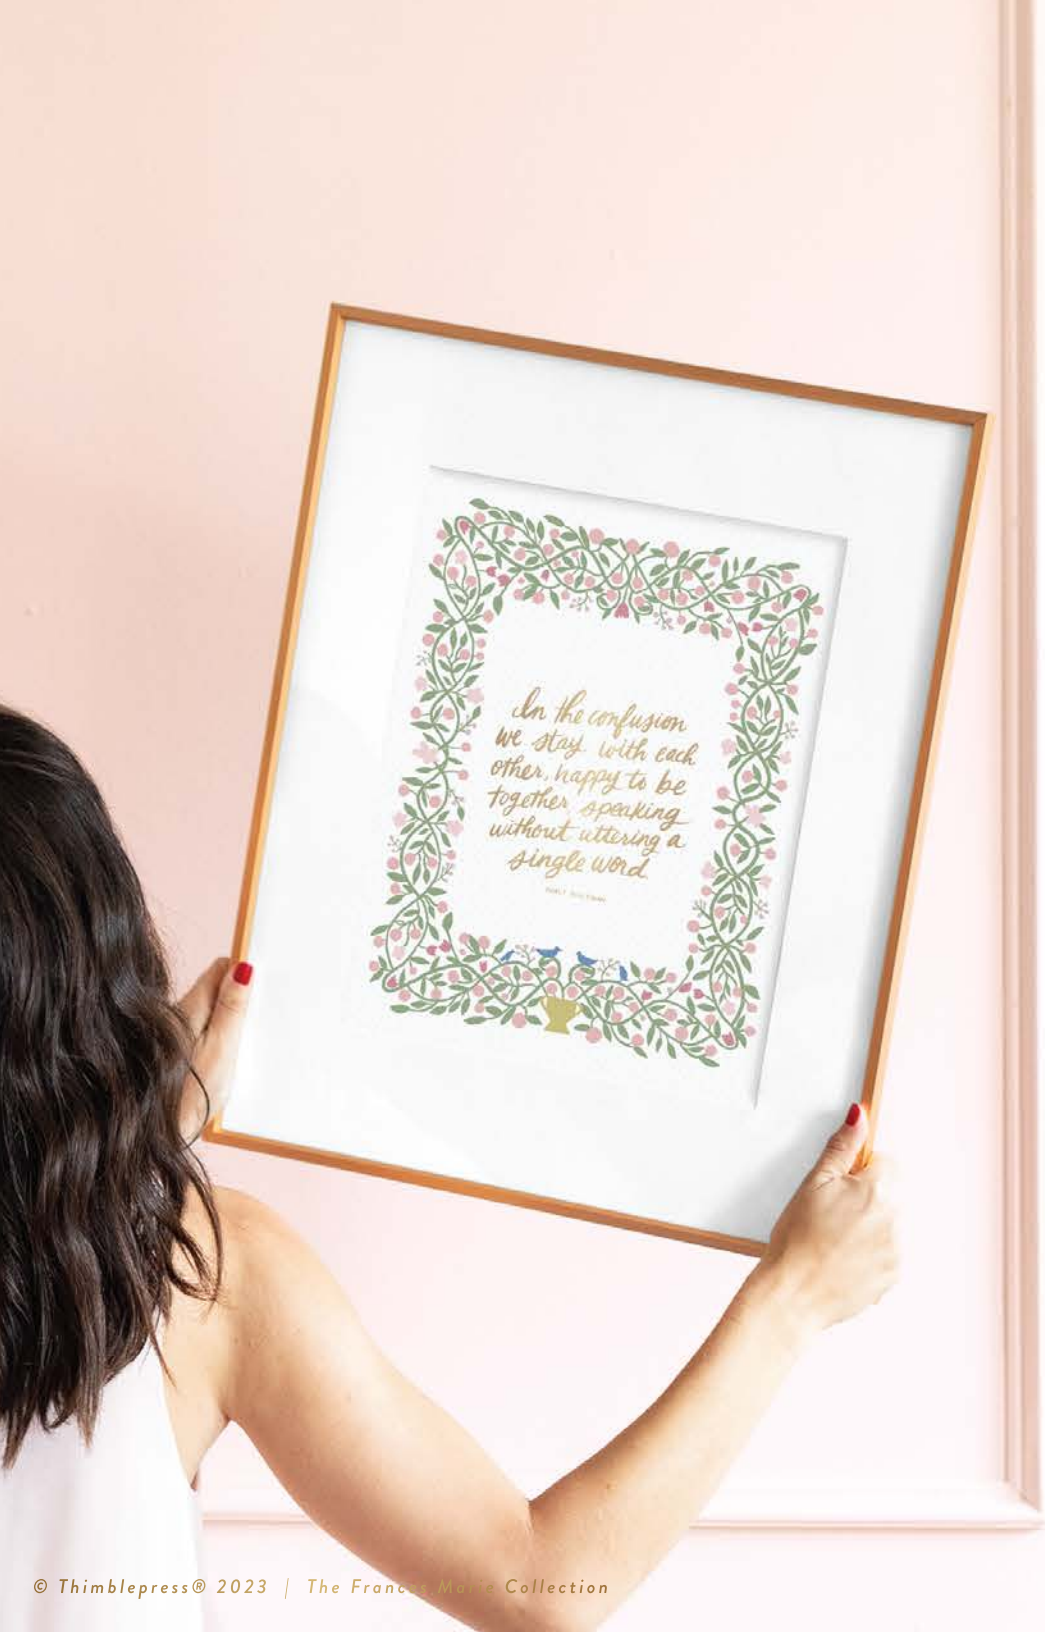 In the confusion
we stay with each
other, happy to be
together, speaking
without uttering a
single word.
© Thimblepress® 2023 | The Frances Marie Collection